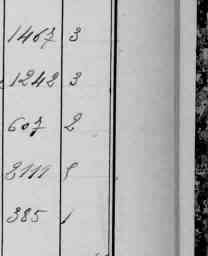 1467 3
1242 3
607 2
3111 5
385 1